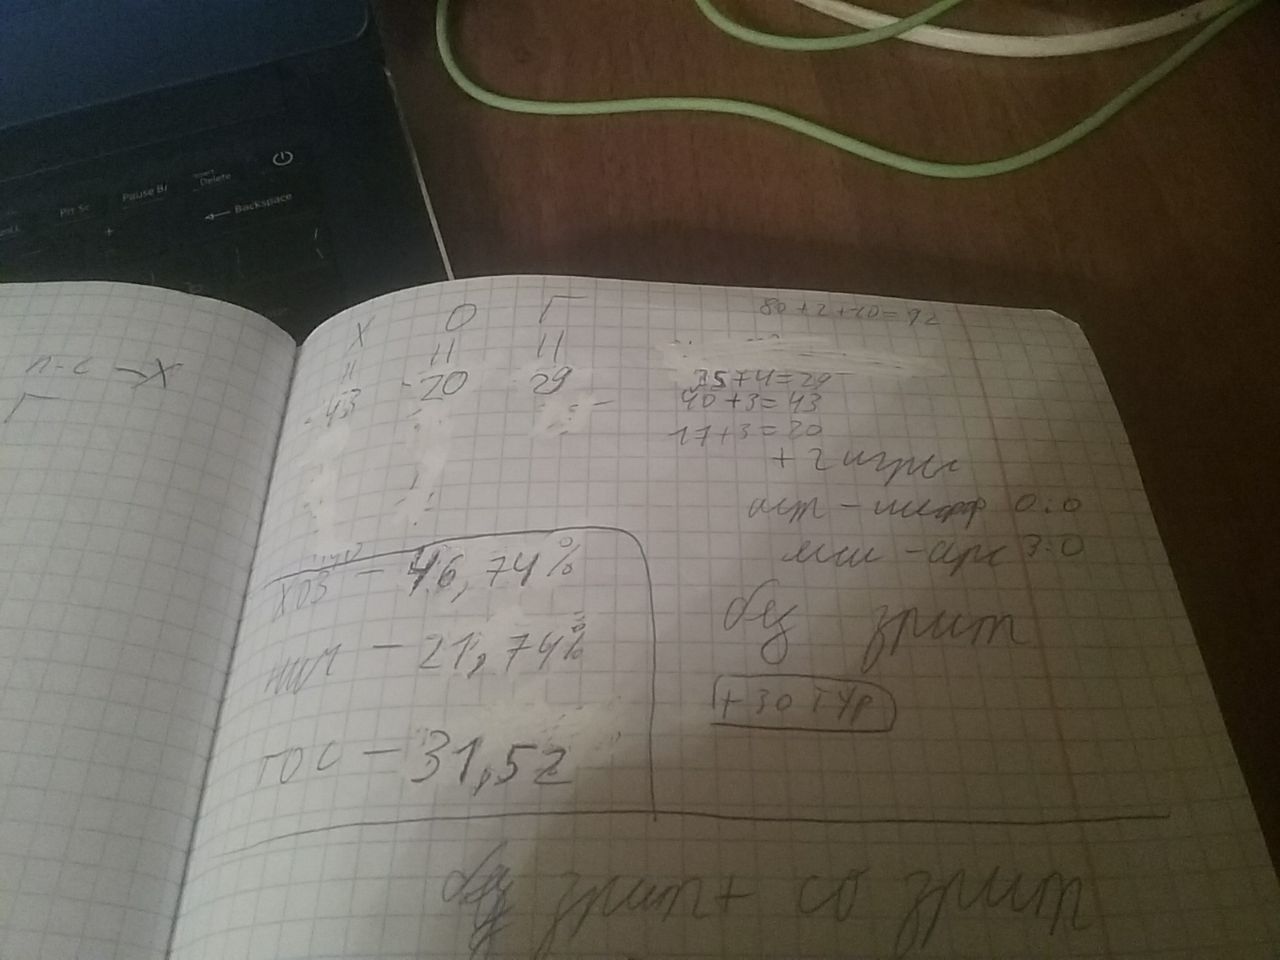 Prt Sc
Pause Br
Insert
Delete
Backspace
п-с – X
Г
X О Г
11 11 11
43 20 29
80+2+10=92
25+4=29
40+3=43
17+3=20
+ 2 игры
аст - шефф 0:0
мси - арс 3:0
без зрит
+30 ТУР
хоз – 46,74%
нич – 21,74%
гос – 31,52
без зрит + со зрит